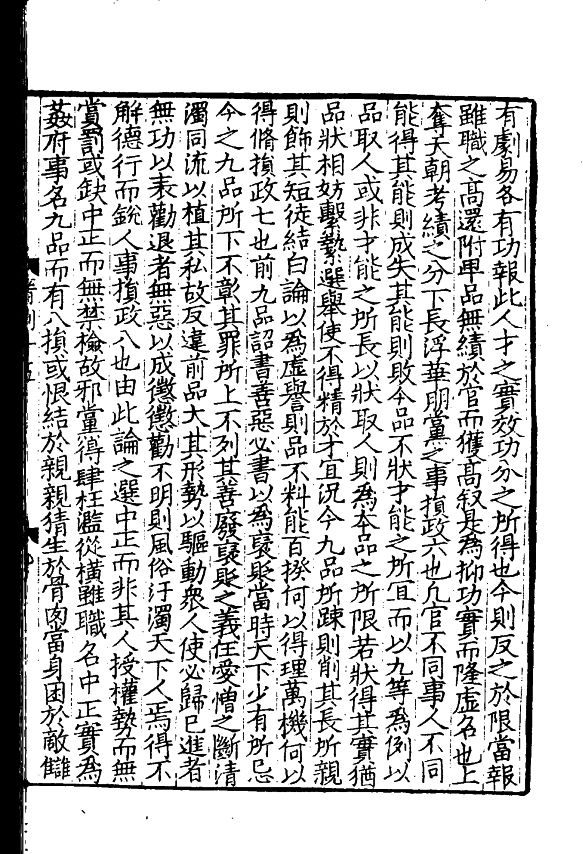 有劇易各有功報此人才之實效功分之所得也今則反之於限當報
雖職之高還附卑品無績於官而獲高叙是為抑功實而隆虛名也上
奪天朝考績之分下長浮華朋黨之事損政六也凡官不同事人不同
能得其能則成失其能則敗今品不狀才能之所宜而以九等為例以
品取人或非才能之所長以狀取人則為本品之所限若狀得其實猶
品狀相妨繫縶選舉使不得精於才宜況今九品所踈則削其長所親
則飾其短徒結白論以為虛譽則品不料能百揆何以得理萬機何以
得脩損政七也前九品詔書善惡必書以為襃貶當時天下少有所忌
今之九品所下不彰其罪所上不列其善廢襃貶之義任愛憎之斷清
濁同流以植其私故反違前品大其形勢以驅動衆人使必歸已進者
無功以表勸退者無惡以成懲懲勸不明則風俗汙濁天下人焉得不
解德行而銳人事損政八也由此論之選中正而非其人授權勢而無
賞罰或缺中正而無禁檢故邪黨得肆枉濫從橫雖職名中正實為
姦府事名九品而有八損或恨結於親親猜生於骨肉當身困於敵讎